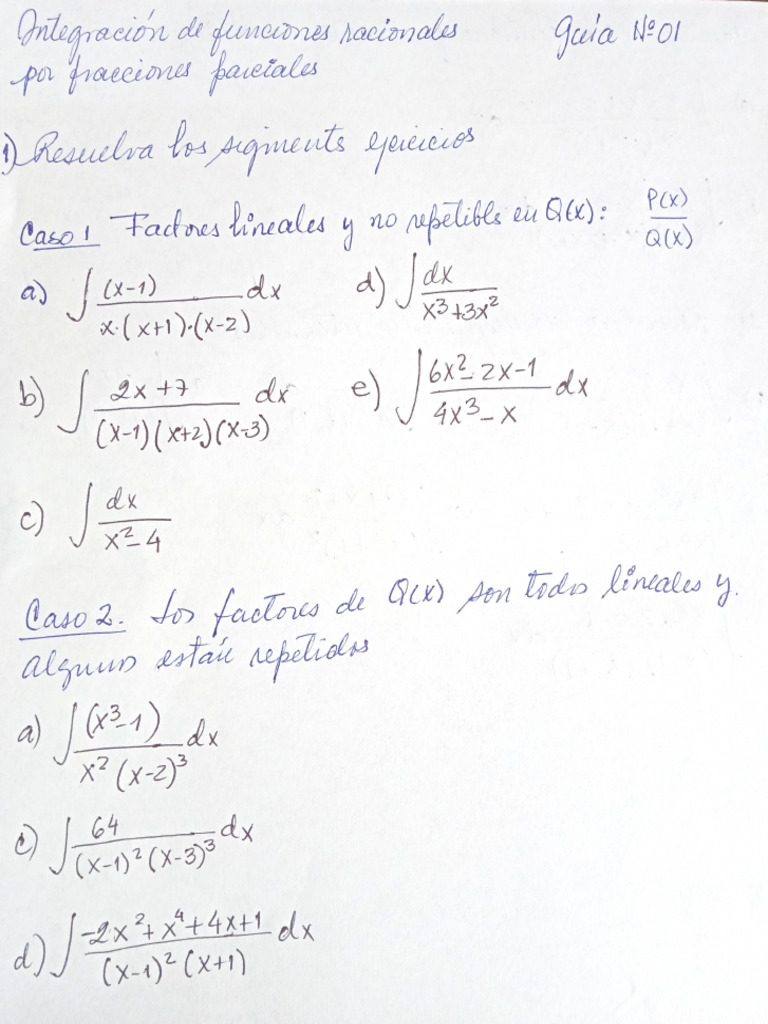 Integración de funciones racionales Guía Nº 01
por fracciones parciales
1) Resuelva los siguients ejercicios
Caso 1 Factores lineales y no repetible en Q(x): P(x)/Q(x)
a) ∫ (x-1)/(x·(x+1)·(x-2)) dx d) ∫ dx/(x³+3x²)
b) ∫ (2x+7)/((x-1)(x+2)(x-3)) dx e) ∫ (6x²-2x-1)/(4x³-x) dx
c) ∫ dx/(x²-4)
Caso 2. Los factores de Q(x) son todos lineales y
algunos están repetidos
a) ∫ (x³-1)/(x²(x-2)³) dx
c) ∫ 64/((x-1)²(x-3)³) dx
d) ∫ (-2x²+x⁴+4x+1)/((x-1)²(x+1)) dx